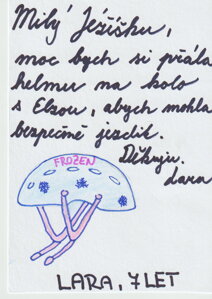 Milý Ježíšku,
moc bych si přála
helmu na kolo
s Elsou, abych mohla
bezpečně jezdit.
Děkuju.
Lara
FROZEN
LARA, 7 LET